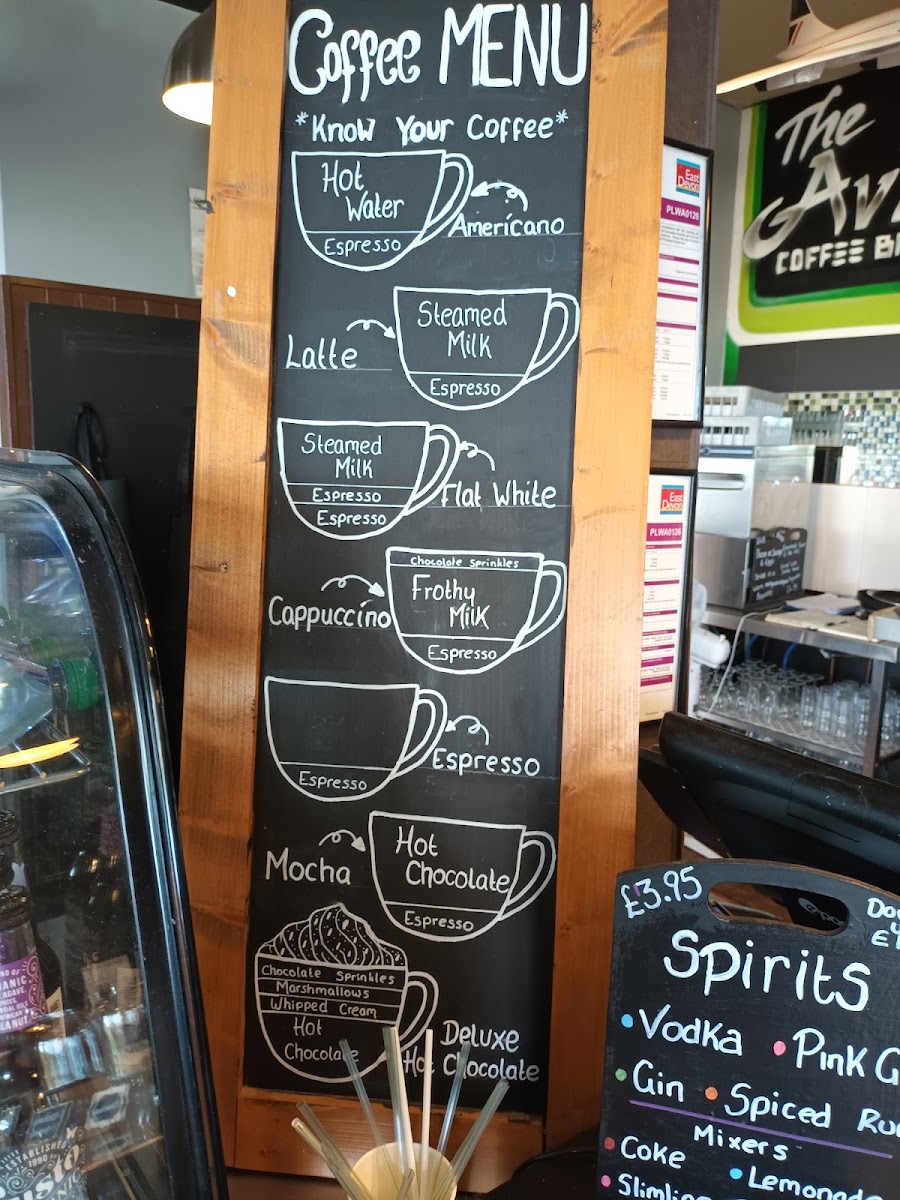 Coffee MENU
*Know Your Coffee*
Hot
Water
Espresso
Americano
Latte
Steamed
Milk
Espresso
Steamed
Milk
Espresso
Espresso
Flat White
Cappuccino
Chocolate Sprinkles
Frothy
Milk
Espresso
Espresso
Espresso
Mocha
Hot
Chocolate
Espresso
Chocolate Sprinkles
Marshmallows
Whipped Cream
Hot
Chocolate
Deluxe
Hot Chocolate
East
Devon
PLWA0126
East
Devon
PLWA0126
The
COFFEE
£3.95
Spirits
Vodka
Pink
Gin
Spiced
Mixers
Coke
Lemonade
ESTABLISHED
1990